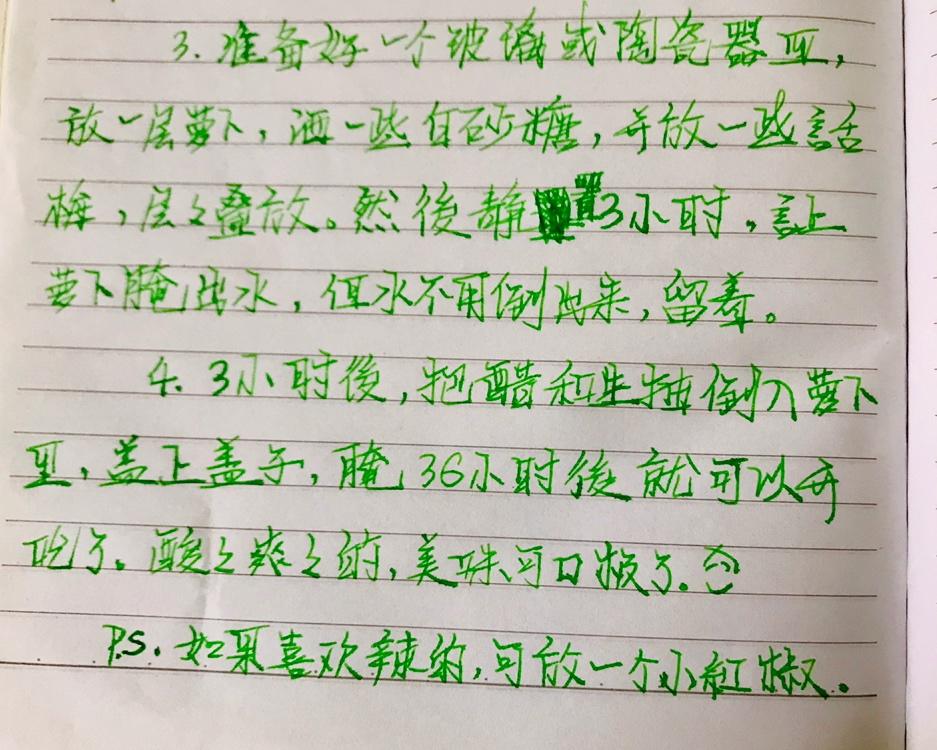 3. 准备好一个玻璃或陶瓷器皿,
放一层萝卜,洒一些白砂糖,并放一些話
梅,层々叠放。然後静置3小时,让
萝卜腌出水,但水不用倒出来,留着。
4. 3小时後,把醋和生抽倒入萝卜
里,盖上盖子,腌36小时後就可以开
吃了。酸々爽々的,美味可口极了。
P.S. 如果喜欢辣的,可放一个小紅椒。